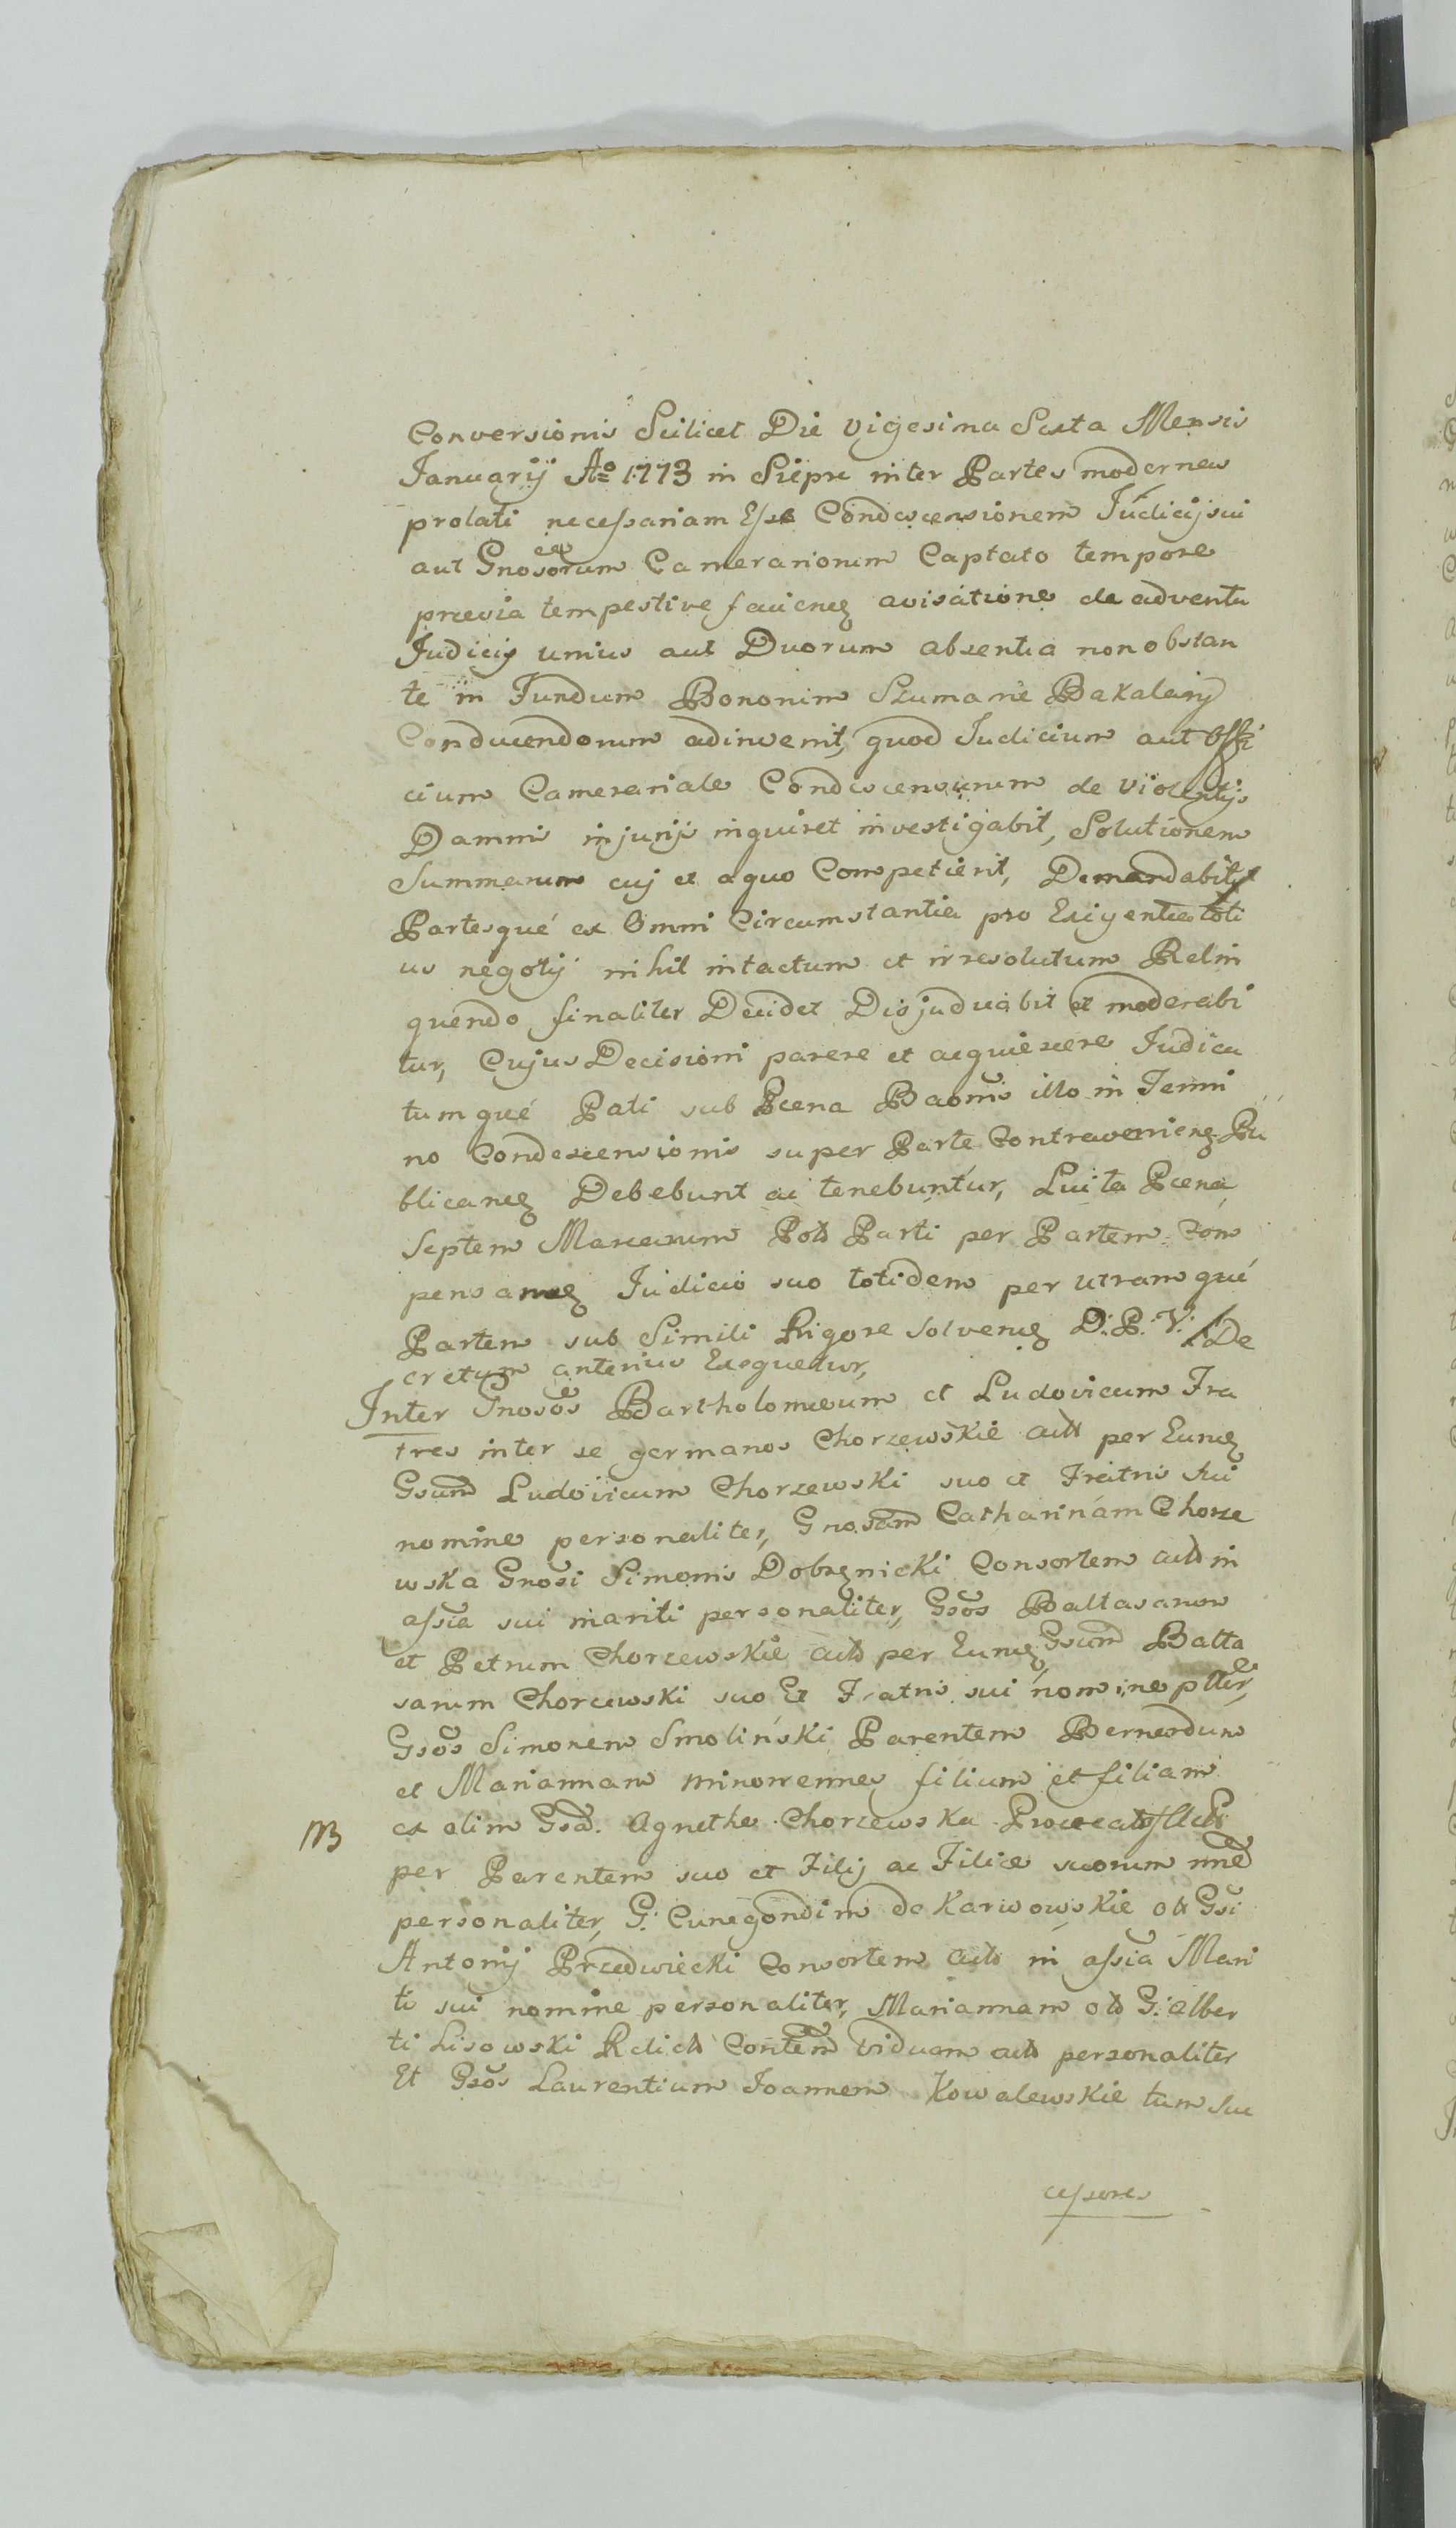 Conversionis Scilicet Die vigesima Sexta Mensis
Januarij Aо 1773 in Sierpc inter Partes modernas
prolati necessariam Esse Condescensionem Judicij sui
aut Gnosorum Camerariorum Captato tempore
prævia tempestive faciend avisatione de adventu
Judicij unius aut Duorum absentia non obstan
te in Fundum Bonorum Szumanie Bakalary
Conducendorum adinvenit, quod Judicium aut Offi
cium Camerariale Condescensurum de violentijs
Damnis injurijs inquiret investigabit, Solutionem
Summarum cuj et a quo Competierit, Demandabit
Partesqué ex Omni Circumstantia pro Exigentia toti
us negotij nihil intactum et irresolutum Relin
quendo finaliter Decidet Disjudicabit et moderabi
tur, Cujus Decisioni parere et acquiescere Judica
tumqué Pati sub Pœna Baonis illo in Termi
no Condescensionis super Parte Contravenien Pu
blicand Debebunt ac tenebuntur, Luita Pœna
Septem Marcarum Pol Parti per Partem Com
pensand Judicio suo totidem per utramqué
Partem sub Simili Rigore solvend D: P: V: De
cretum anterius Exequetur,
Inter Gnosos Bartholomæum et Ludovicum Fra
tres inter se germanos Chorzewskie act per Eund
Gsum Ludovicum Chorzewski suo et Fratris sui
nomine personaliter, Gnosam Catharinam Chorze
wska Gnosi Simonis Dobrznicki Consortem act in
assia sui mariti personaliter, Gsos Baltasarum
et Petrum Chorzewskie act per Eund Gsum Balta
sarum Chorzewski suo Et Fratris sui nomine plter,
Gsos Simonem Smoliński Parentem Bernardum
et Mariannam minorennes filium et filiam
ex olim Gsa. Agnethe Chorzewska Procreatos Act
NB
per Parentem suo et Filij ac Filiæ suorum nne
personaliter, G: Cunegondim de Karwowskie ol Gsi
Antonij Przedwiecki Consortem act in assia Mari
ti sui nomine personaliter, Mariannam ol G: Alber
ti Lisowski Relict Contem viduam act personaliter
Et Gsos Laurentium Joannem Kowalewskie tum Suc
cessores